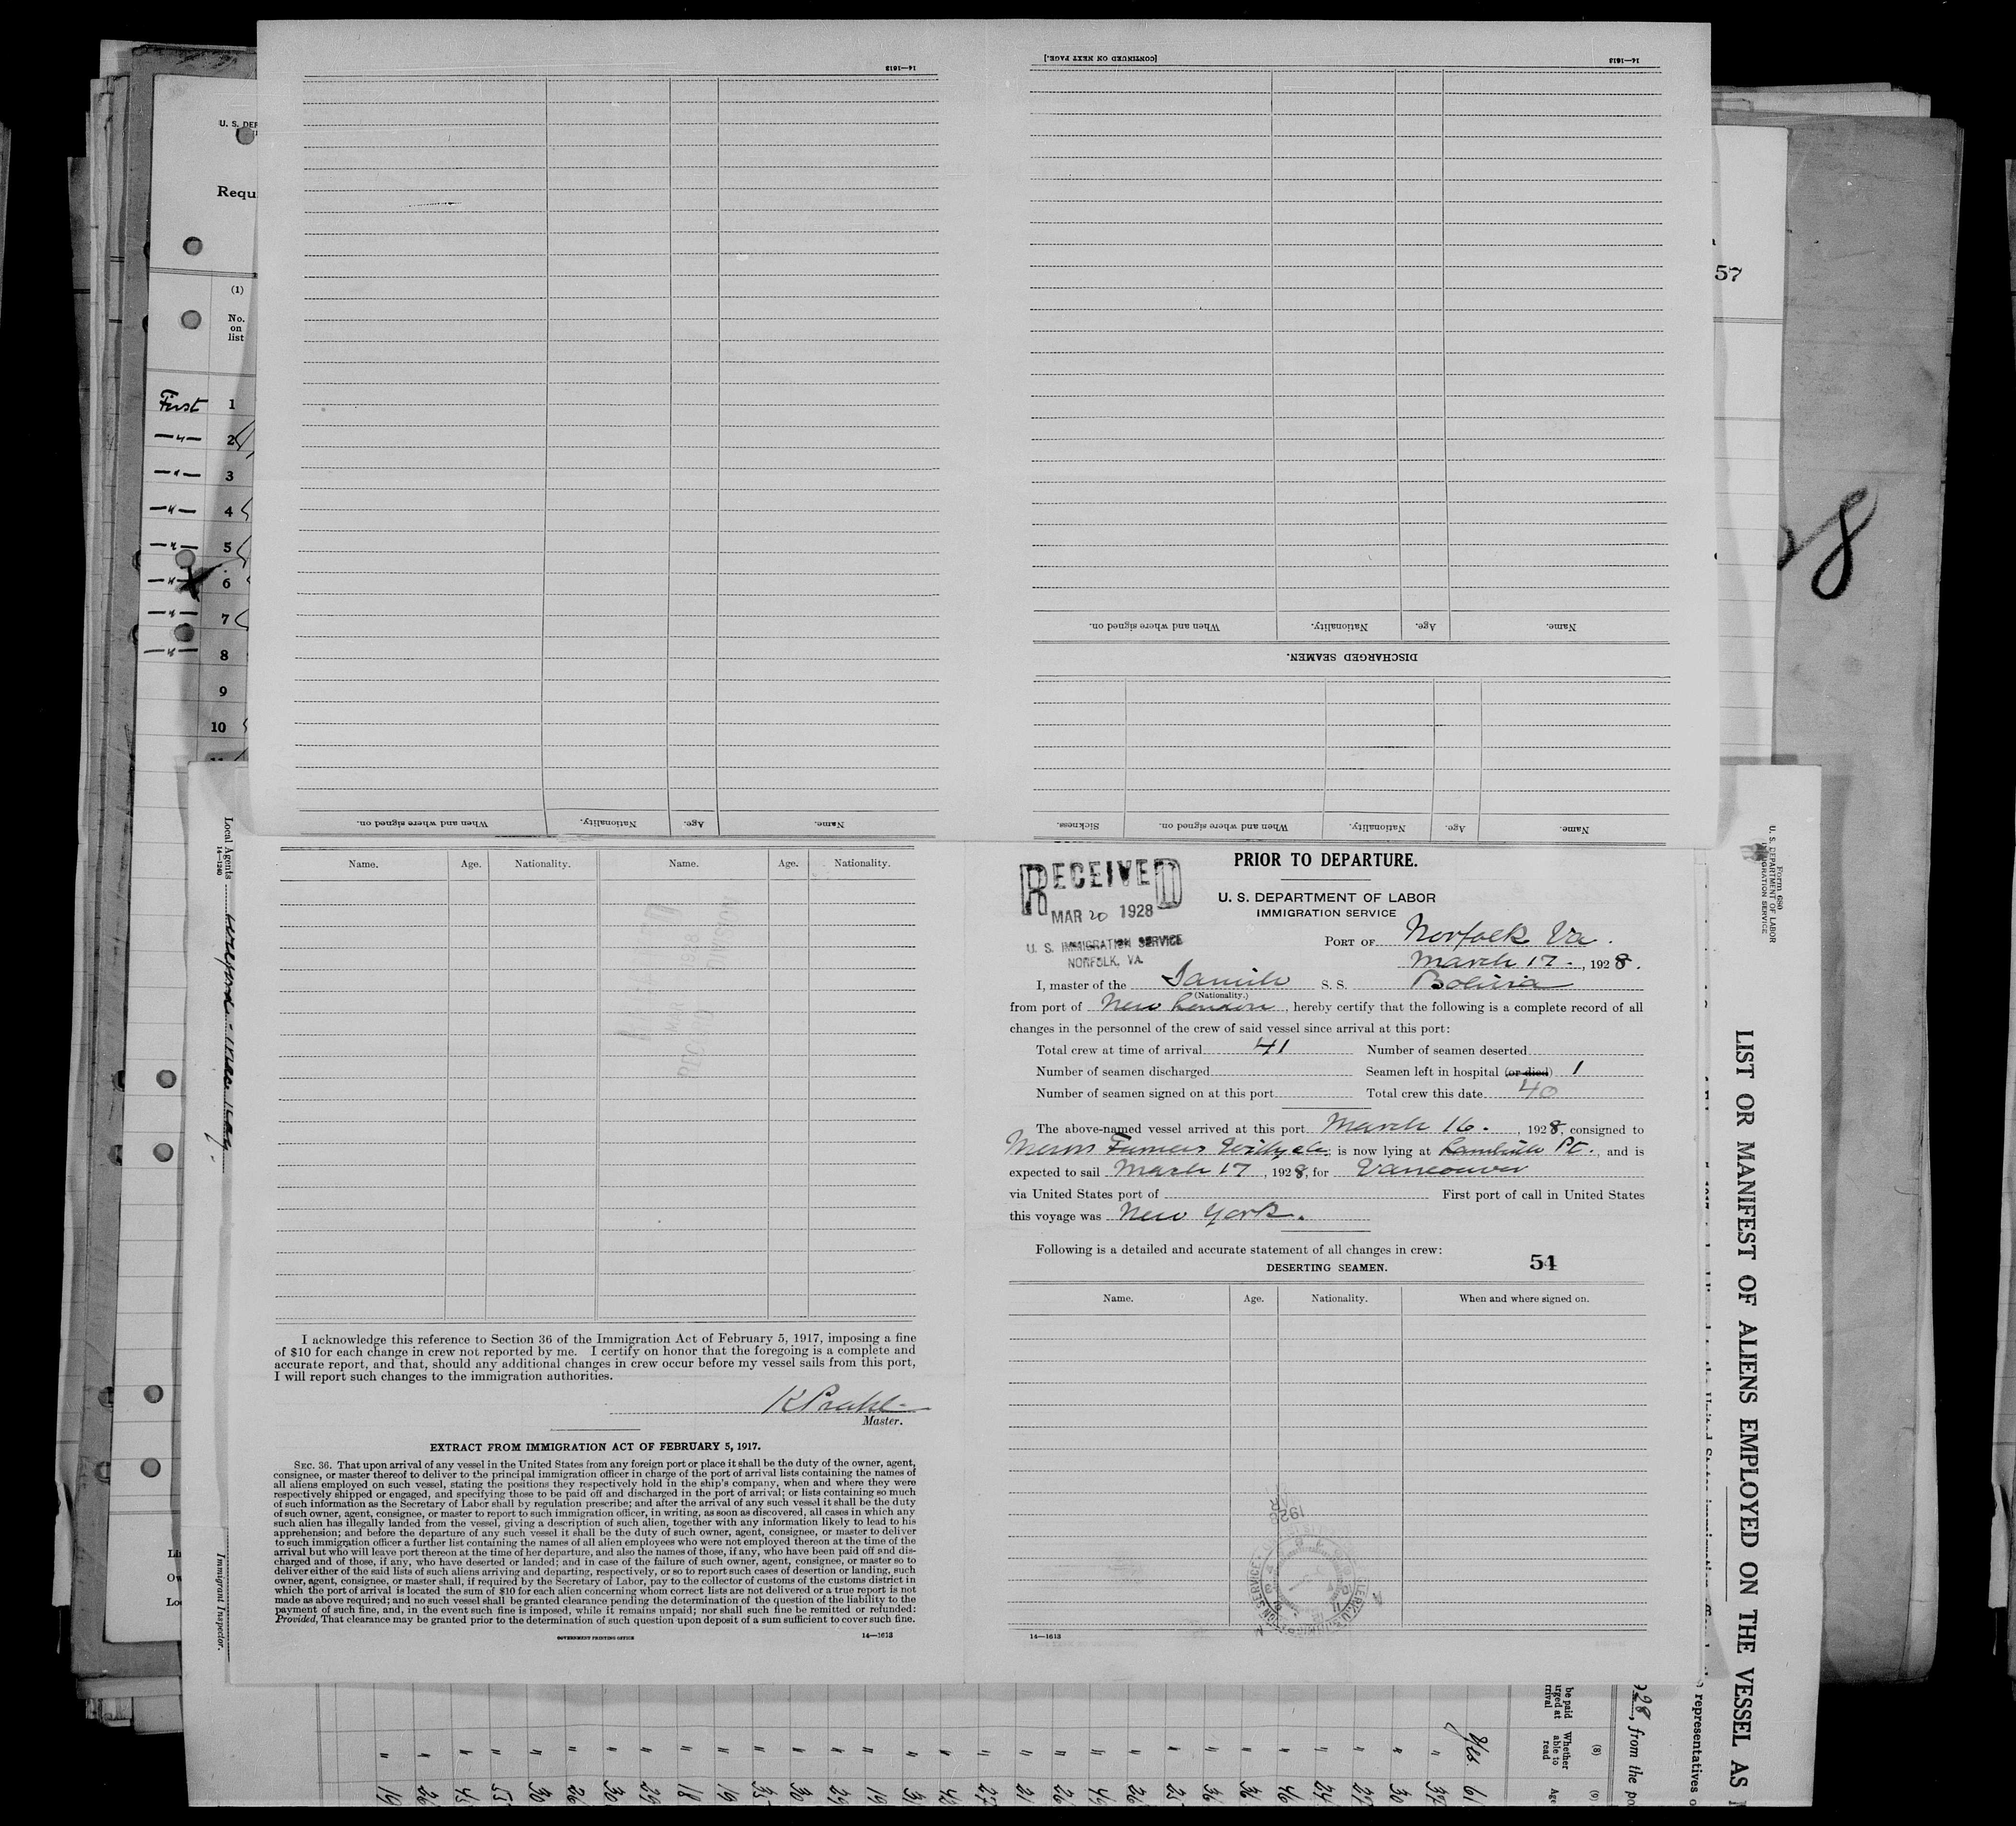 [CONTINUED ON NEXT PAGE.]
14—1613
14—1613
Name. Age. Nationality. When and where signed on.
DISCHARGED SEAMEN.
Name. Age. Nationality. When and where signed on.
Name. Age. Nationality. When and where signed on. Sickness.
U. S. DEP
Requ
(1)
No.
on
list
First 1
—"— 2
—"— 3
—"— 4
—"— 5
—"— X 6
—"— 7
—"— 8
9
10
57
28
Local Agents
14—1240
Immigrant Inspector.
Name. Age. Nationality. Name. Age. Nationality.
I acknowledge this reference to Section 36 of the Immigration Act of February 5, 1917, imposing a fine
of $10 for each change in crew not reported by me. I certify on honor that the foregoing is a complete and
accurate report, and that, should any additional changes in crew occur before my vessel sails from this port,
I will report such changes to the immigration authorities.
Master.
EXTRACT FROM IMMIGRATION ACT OF FEBRUARY 5, 1917.
SEC. 36. That upon arrival of any vessel in the United States from any foreign port or place it shall be the duty of the owner, agent,
consignee, or master thereof to deliver to the principal immigration officer in charge of the port of arrival lists containing the names of
all aliens employed on such vessel, stating the positions they respectively hold in the ship's company, when and where they were
respectively shipped or engaged, and specifying those to be paid off and discharged in the port of arrival; or lists containing so much
of such information as the Secretary of Labor shall by regulation prescribe; and after the arrival of any such vessel it shall be the duty
of such owner, agent, consignee, or master to report to such immigration officer, in writing, as soon as discovered, all cases in which any
such alien has illegally landed from the vessel, giving a description of such alien, together with any information likely to lead to his
apprehension; and before the departure of any such vessel it shall be the duty of such owner, agent, consignee, or master to deliver
to such immigration officer a further list containing the names of all alien employees who were not employed thereon at the time of the
arrival but who will leave port thereon at the time of her departure, and also the names of those, if any, who have been paid off and dis-
charged and of those, if any, who have deserted or landed; and in case of the failure of such owner, agent, consignee, or master so to
deliver either of the said lists of such aliens arriving and departing, respectively, or so to report such cases of desertion or landing, such
owner, agent, consignee, or master shall, if required by the Secretary of Labor, pay to the collector of customs of the customs district in
which the port of arrival is located the sum of $10 for each alien concerning whom correct lists are not delivered or a true report is not
made as above required; and no such vessel shall be granted clearance pending the determination of the question of the liability to the
payment of such fine, and, in the event such fine is imposed, while it remains unpaid; nor shall such fine be remitted or refunded:
Provided, That clearance may be granted prior to the determination of such question upon deposit of a sum sufficient to cover such fine.
GOVERNMENT PRINTING OFFICE 14—1613
PRIOR TO DEPARTURE.
RECEIVED
MAR 20 1928
U. S. IMMIGRATION SERVICE
NORFOLK, VA.
U. S. DEPARTMENT OF LABOR
IMMIGRATION SERVICE
PORT OF Norfolk Va.
March 17., 1928.
I, master of the Danish S. S. Bolivia
(Nationality.)
from port of New London, hereby certify that the following is a complete record of all
changes in the personnel of the crew of said vessel since arrival at this port:
Total crew at time of arrival 41 Number of seamen deserted
Number of seamen discharged Seamen left in hospital (or died) 1
Number of seamen signed on at this port Total crew this date 40
The above-named vessel arrived at this port March 16., 1928, consigned to
Furness Withy; is now lying at Pt., and is
expected to sail March 17, 1928, for Vancouver
via United States port of First port of call in United States
this voyage was New York.
Following is a detailed and accurate statement of all changes in crew:
DESERTING SEAMEN.
54
Name. Age. Nationality. When and where signed on.
14—1613
Form 680
U. S. DEPARTMENT OF LABOR
IMMIGRATION SERVICE
LIST OR MANIFEST OF ALIENS EMPLOYED ON THE VESSEL AS
28, from the po
representatives o
(8) (9)
Whether
able to
read
Age
Yes 61